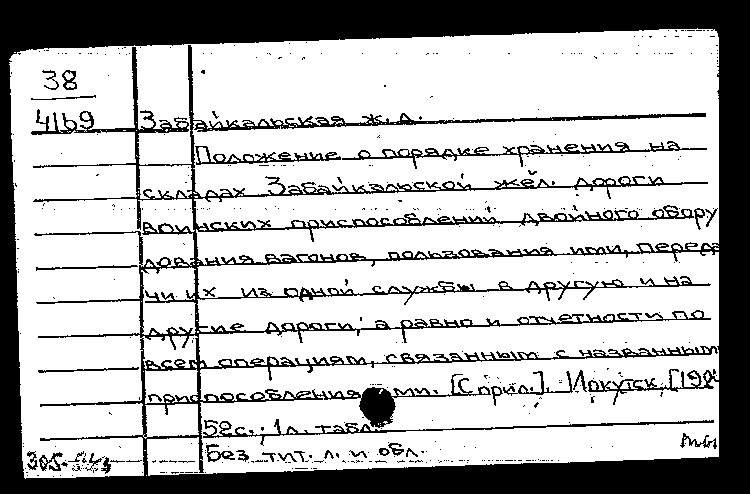 38
41б9 Забайкальская ж. д.
Положение о порядке хранения на
складах Забайкальской жел. дороги
воинских приспособлений двойного обору
дования вагонов, пользования ими, переда
чи их из одной службы в другую и на
другие дороги, а равно и отчетности по
всем операциям, связанным с названным
приспособлениями. [С прил.]. Иркутск, [19
52 с.; 1 л. табл.
Без тит. л. и обл.
305-